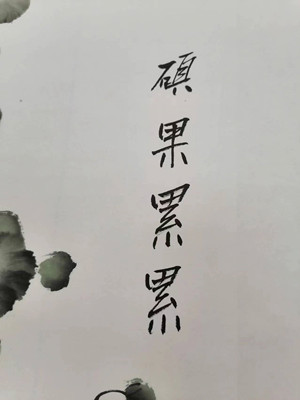 碩果累累